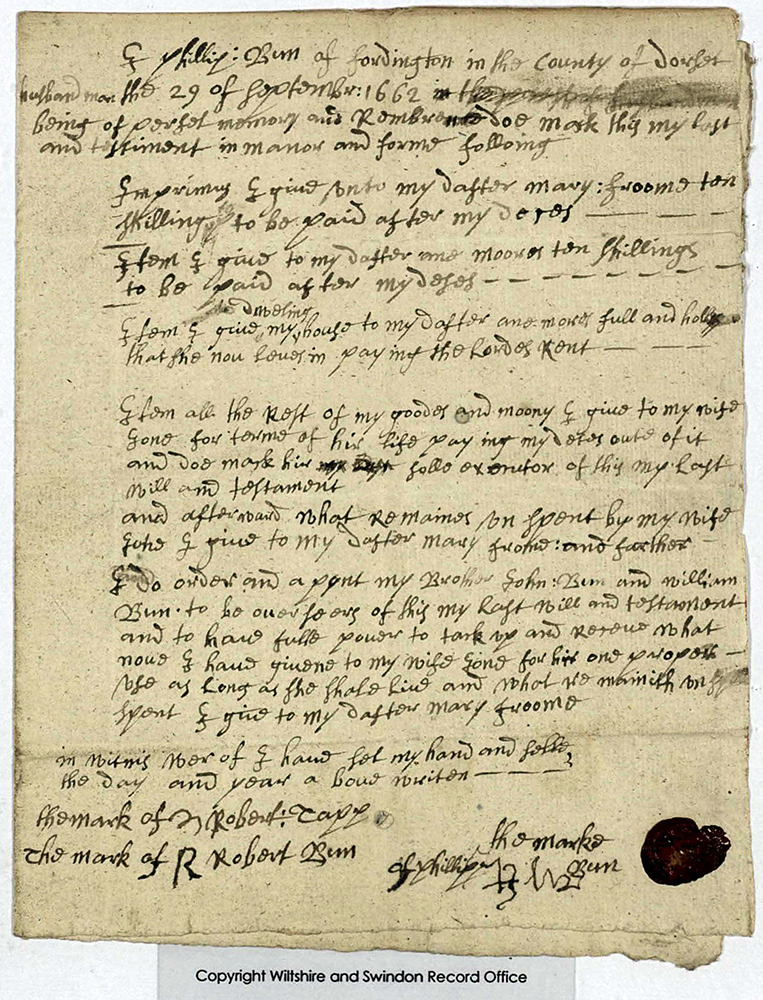 I phillip: Bun of fordington in the County of dorset
husband man the 29 of septembr: 1662 in the
being of perfet memory and Rembrence doe mack this my last
and testiment in manor and forme folloing
Imprimus I give unto my dafter mary: froome ten
shillings to be paid after my deses
Item I give to my dafter ane moores ten shillings
to be paid after my deses
dweling
Item I give my house to my dafter ane mores full and holly
that she nou leves in paying the Lordes Rent
Item all the Rest of my goodes and moony I give to my wife
Jone for terme of hir life paying my detes oute of it
and doe mack hir solle executor of this my Last
will and testament
and afterward what Remaines un spent by my wife
Jone I give to my dafter mary frome: and further
I do order and a pynt my Brother John: Bun and william
Bun. to be overseers of this my last will and testament
and to have fulle power to tack up and Receve what
nove I have givene to my wife Jone for hir one proper
use as Long as she shale live and what re mainith un
spent I give to my dafter mary froome
in witnis wer of I have set my hand and selle
the day and year a bove writen
the mark of Robert: Tapp
The mark of R Robert Bun
the marke
of phillip Bun
Copyright Wiltshire and Swindon Record Office